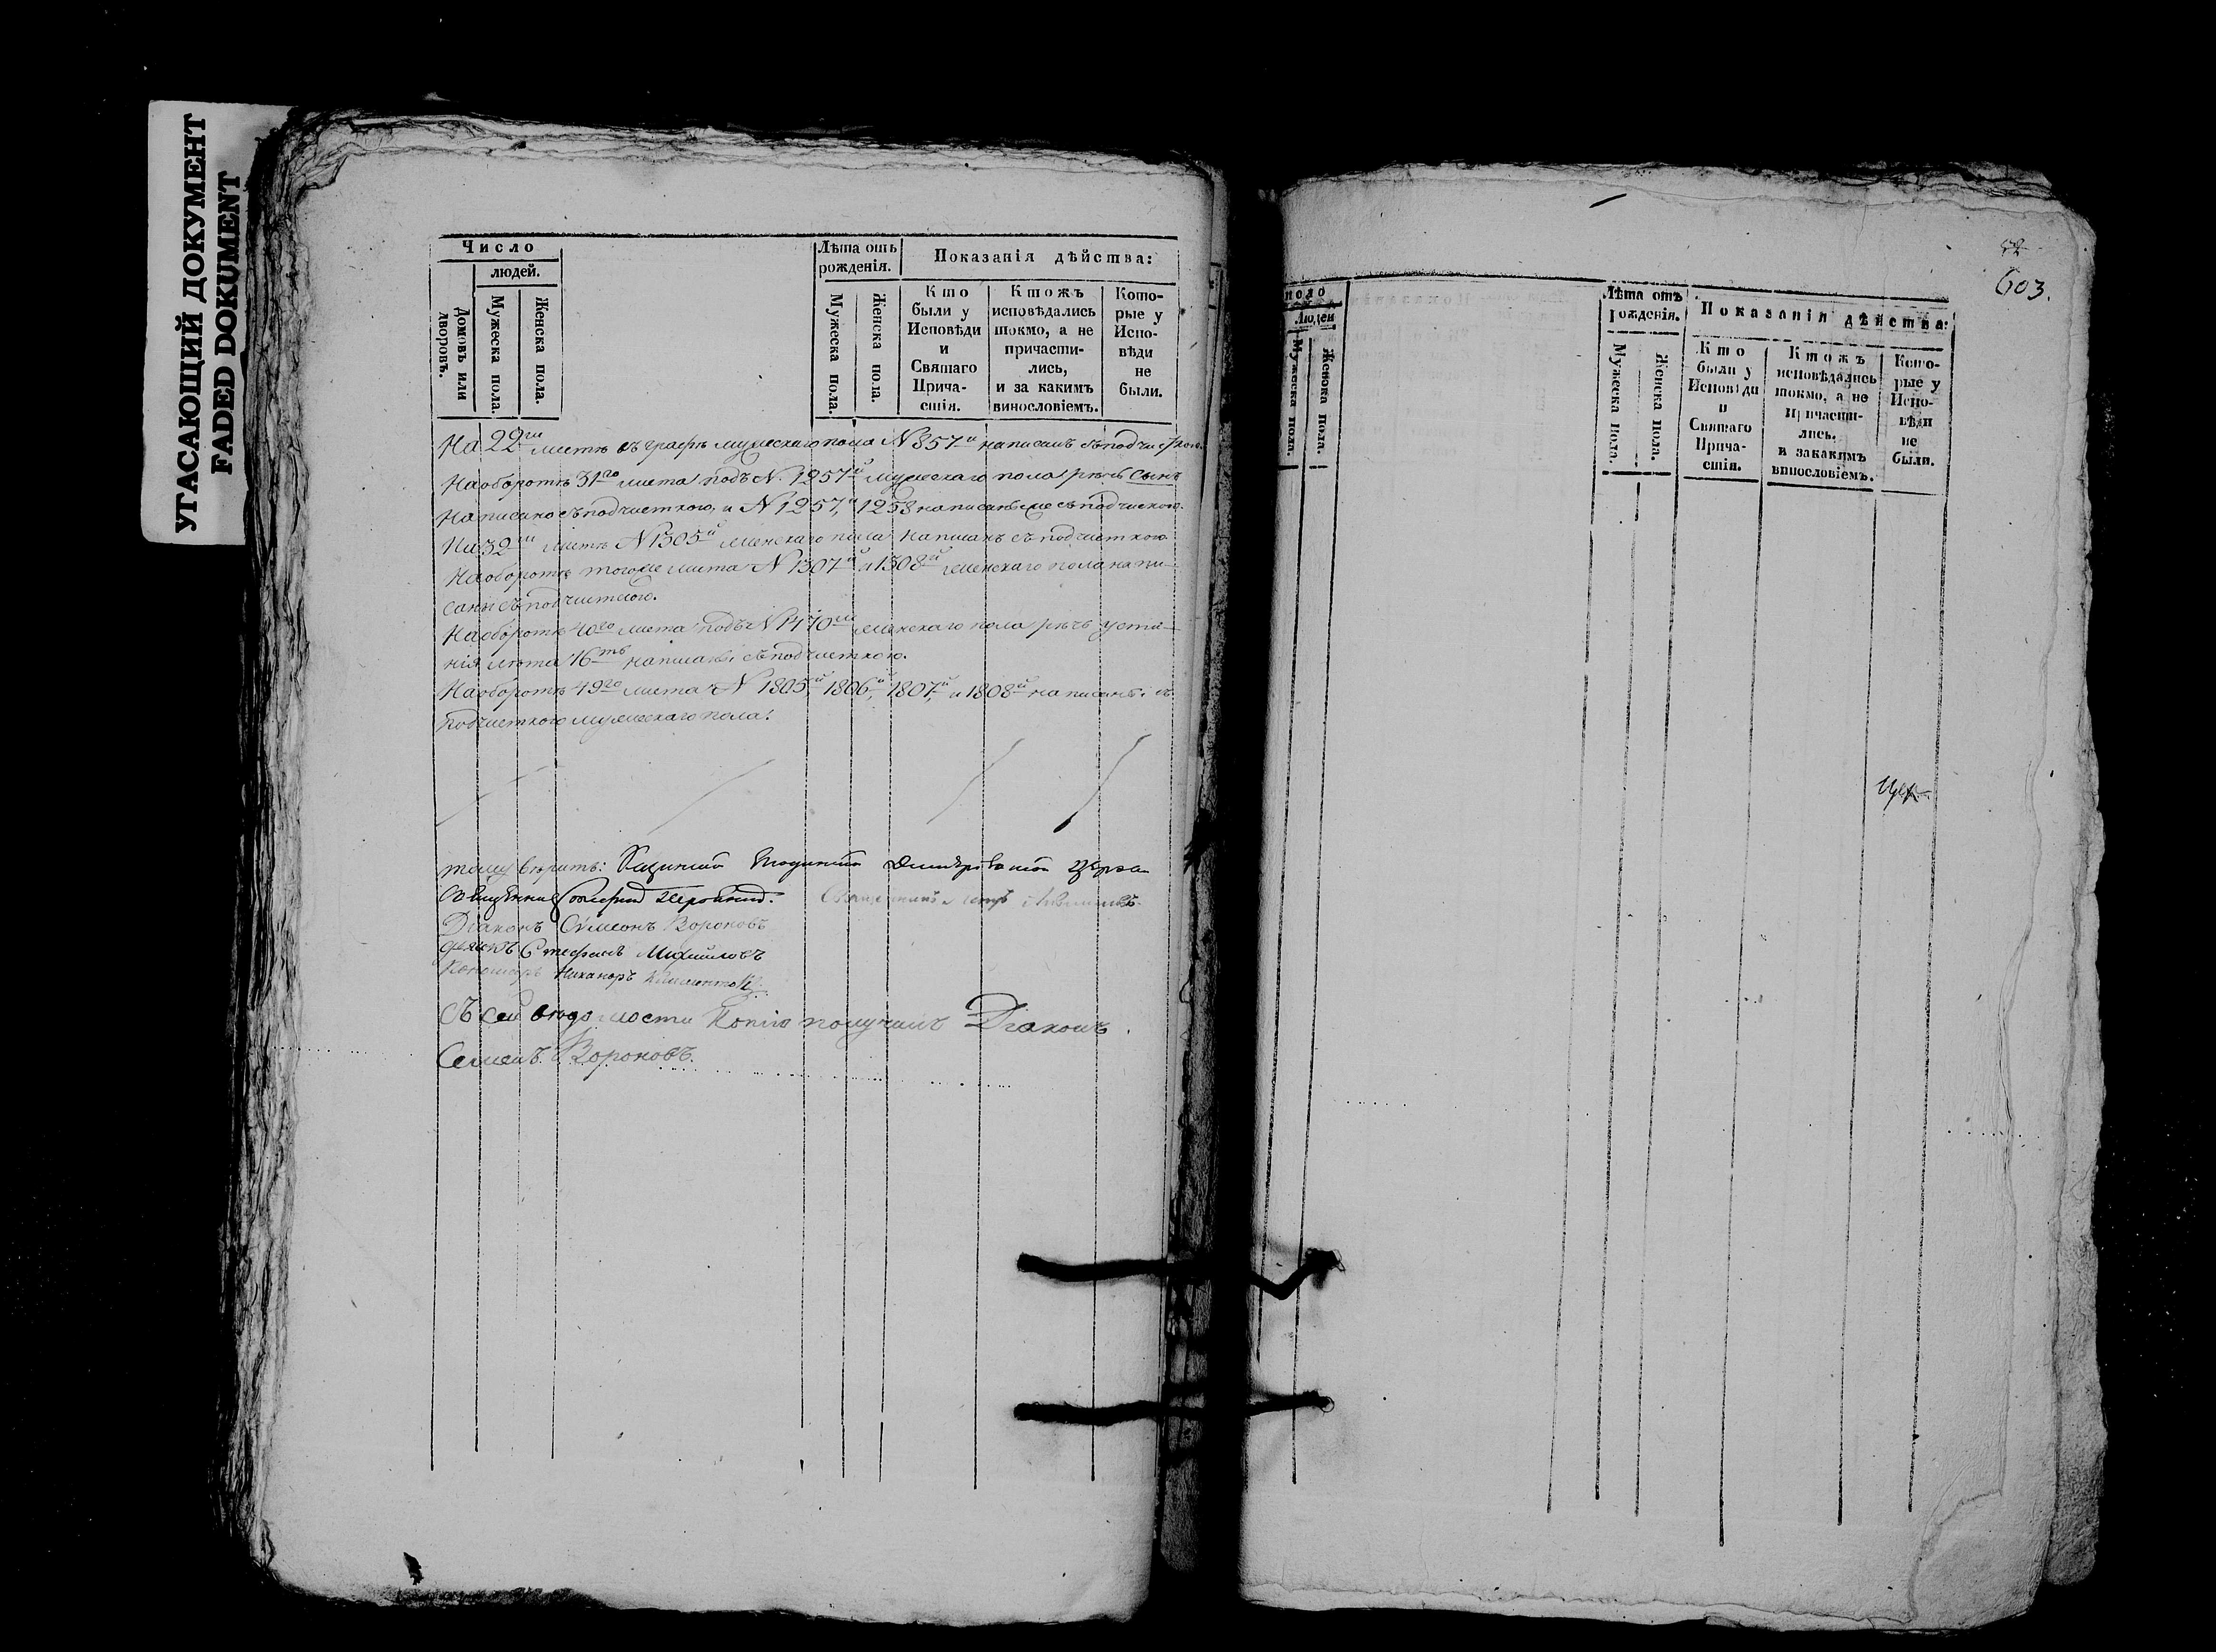 УГАСАЮЩИЙ ДОКУМЕНТ
FADED DOKUMENT
Число
людей.
Домовъ или дворовъ.
Мужеска пола.
Женска пола.
Лѣта отъ рожденія.
Мужеска пола.
Женска пола.
Показанія дѣйства:
Кто
были у
Исповѣди
и
Святаго
Прича-
стія.
Ктожъ
исповѣдались
токмо, а не
причасти-
лись,
и за какимъ
винословіемъ.
Кото-
рые у
Испо-
вѣди
не
были.
На 22мъ листѣ въ графѣ мужескаго пола N 857й написанъ съ подчисткою.
На оборотѣ 31го листа подъ N. 1257й мужескаго пола рѣчь сынъ
написано съ подчисткою, и N 1257, 1258 написаны же съ подчисткою.
На 32мъ листѣ N 1305й женскаго пола написанъ съ подчисткою
На оборотѣ тогоже листа N 1307й и 1308й женскаго пола напи-
саны съ подчисткою.
На оборотѣ 40го листа подъ N 1470мъ женскаго пола рѣчь Усти-
нія лѣта 16ть написаны съ подчисткою.
На оборотѣ 49го листа N 1805й, 1806й, 1807й, и 1808й написаны съ
подчисткою мужескаго пола.
тому вѣрить: Димитріевской
Священникъ
Діаконъ Симеонъ Вороновъ
Стефанъ Михайловъ
Никаноръ
Съ сей вѣдомости Копію получилъ Діаконъ
Семенъ Вороновъ.
52
603.
число
Людей
Мужеска пола.
Женска пола.
Лѣта отъ
рожденія.
Мужеска пола.
Женска пола.
Показанія дѣйства:
Кто
были у
Исповѣди
и
Святаго
Прича-
стія.
Ктожъ
исповѣдались
токмо, а не
причасти-
лись.
и закакимъ
винословіемъ.
Кото-
рые у
Испо-
вѣди
не
были.